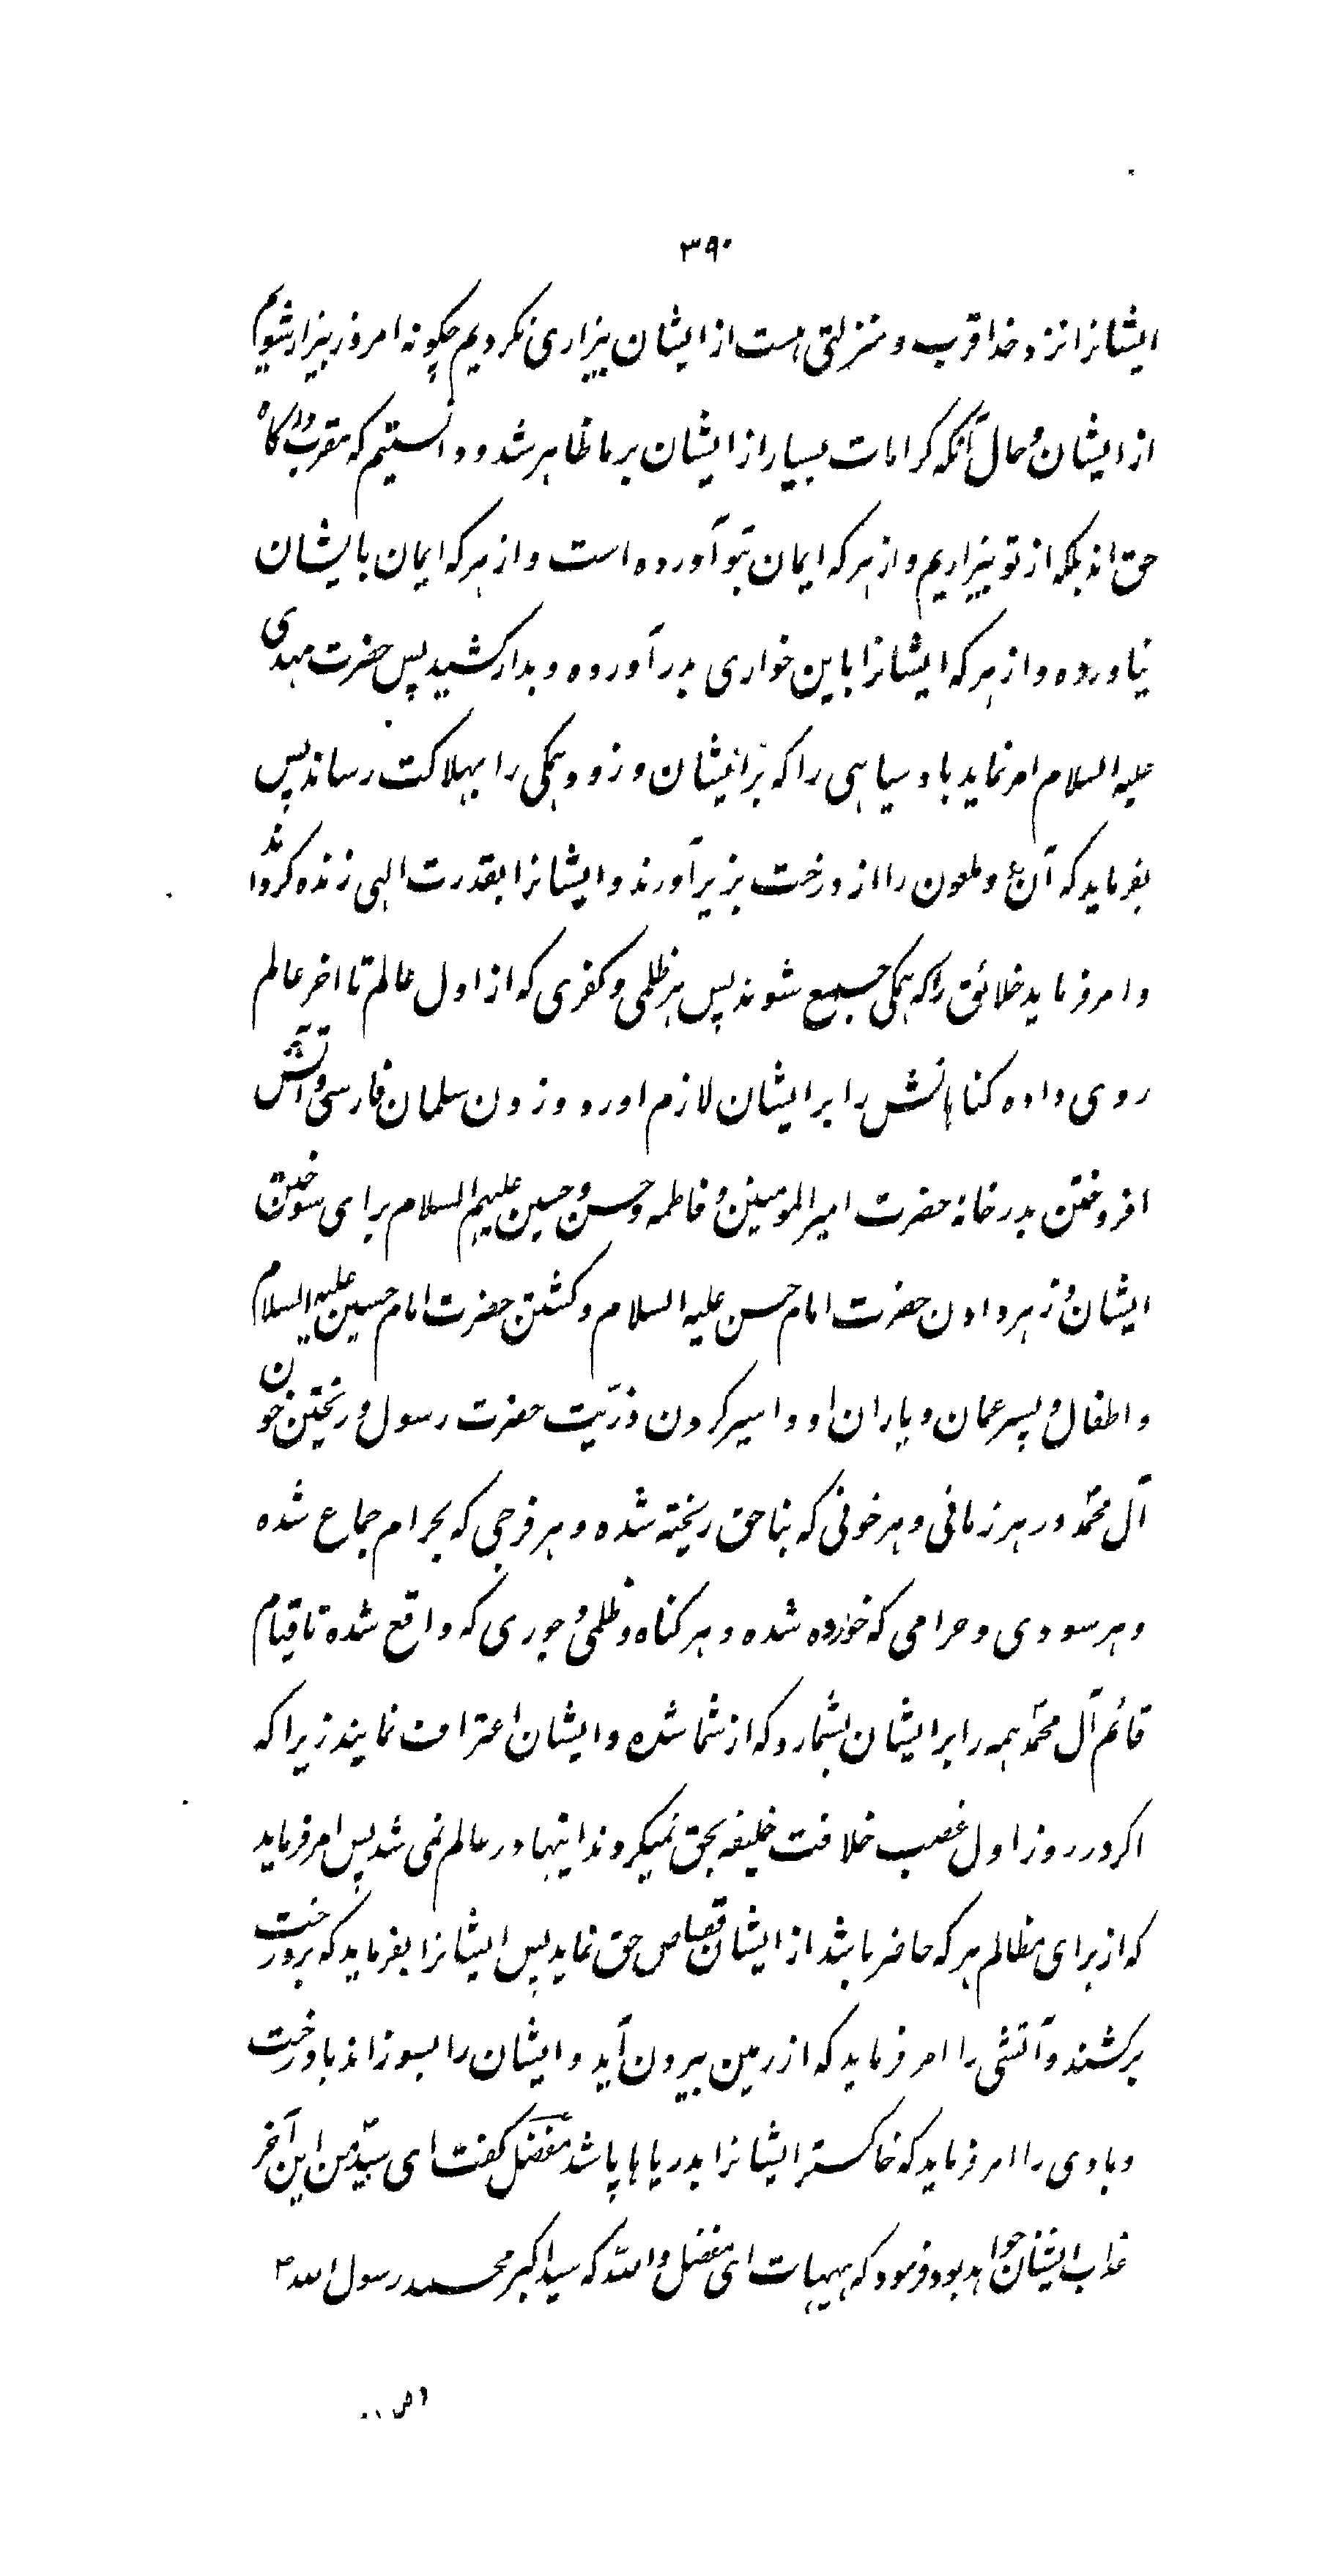 ۳۹۰
ایشانرا نزد خدا قرب و منزلتی هست از ایشان بیزاری نکردیم چگونه امروز بیزار شویم
از ایشان و حال آنکه کرامات بسیار از ایشان بر ما ظاهر شد و دانستیم که مقرب درگاه
حق اند بلکه از تو بیزاریم و از هر که ایمان بتو آورده است و از هر که ایمان بایشان
نیاورده و از هر که ایشانرا باین خواری بدر آورده و بدار کشید پس حضرت مهدی
علیه السلام امر نماید باد سیاهی را که بر ایشان وزد و همگی را بهلاکت رساند پس
بفرماید که آن دو ملعون را از درخت بزیر آورند و ایشانرا بقدرت الهی زنده گرداند
و امر فرماید خلائق را که همگی جمع شوند پس هر ظلمی و کفری که از اول عالم تا اخر عالم
روی داده گناهانش را بر ایشان لازم اورد و زدن سلمان فارسی و آتش
افروختن بدر خانهٔ حضرت امیر المومنین و فاطمه و حسن و حسین علیهم السلام برای سوختن
ایشان و زهر دادن حضرت امام حسن علیه السلام و کشتن حضرت امام حسین علیه السلام
و اطفال و پسر عمان و یاران او و اسیر کردن ذریّت حضرت رسول و ریختن خون
آل محمّد در هر زمانی و هر خونی که بناحق ریخته شده و هر فرجی که بحرام جماع شده
و هر سودی و حرامی که خورده شده و هر گناه و ظلمی و جوری که واقع شده تا قیام
قائم آل محمّد همه را بر ایشان بشمارد که از شما شده و ایشان اعتراف نمایند زیرا که
اگر در روز اول غصب خلافت خلیفه بحق نمیکردند اینها در عالم نمی شد پس امر فرماید
که از برای مظالم هر که حاضر باشد از ایشان قصاص حق نماید پس ایشانرا بفرماید که بر درخت
برکشند و آتشی را امر فرماید که از زمین بیرون آید و ایشان را بسوزاند با درخت
و بادی را امر فرماید که خاکستر ایشانرا بدریاها پاشد مفضل گفت ای سیّد من این آخر
عذاب ایشان خواهد بود فرمود که هیهات ای مفضل و اللّه که سید اکبر محمد رسول الله